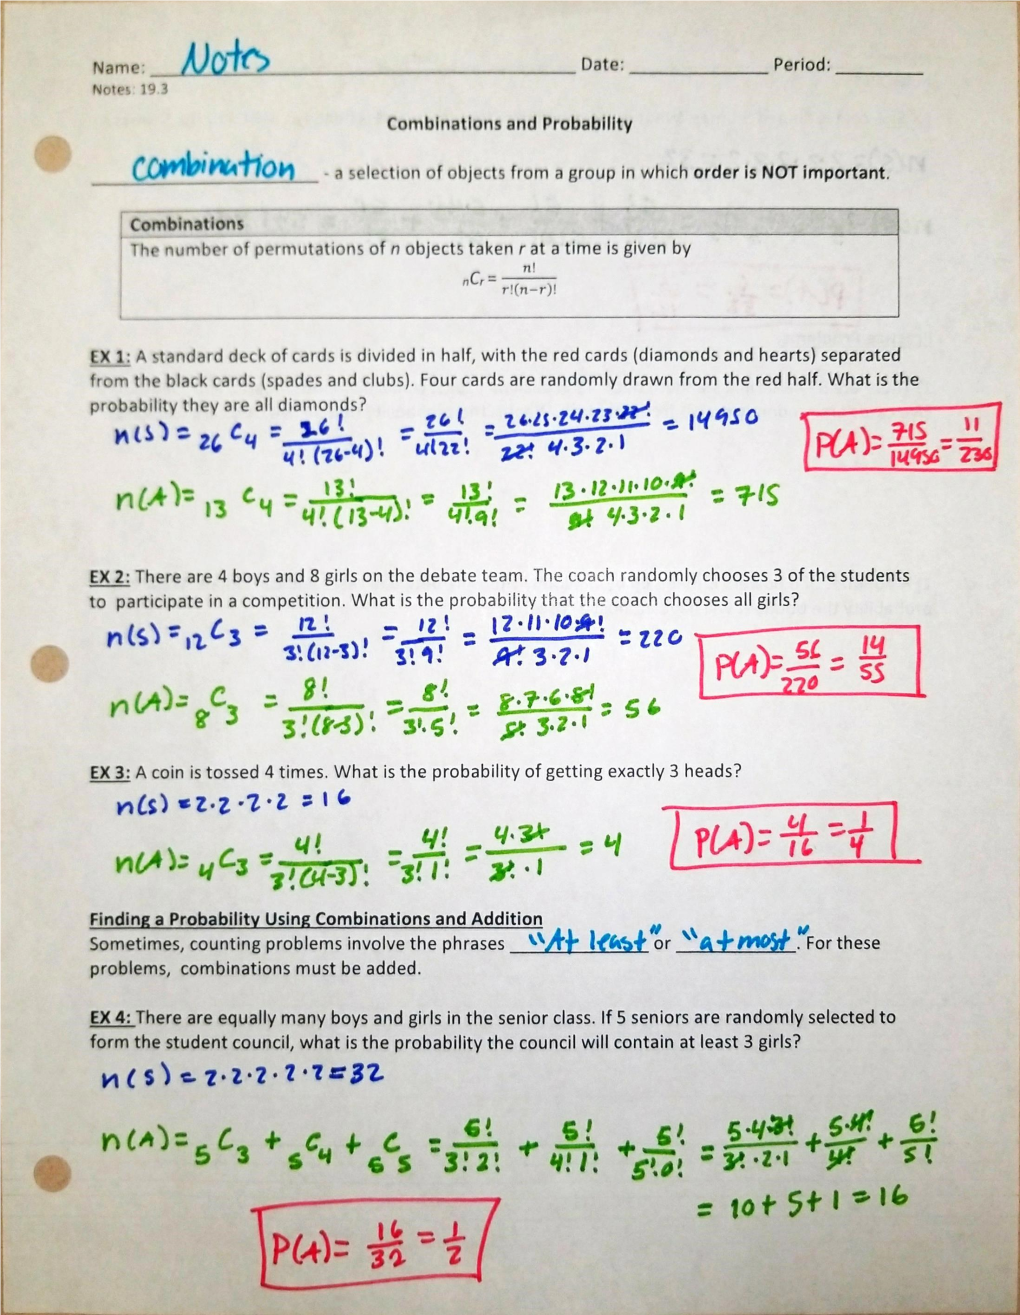 Name: Notes Date: Period:
Notes: 19.3
Combinations and Probability
combination - a selection of objects from a group in which order is NOT important.
Combinations
The number of permutations of n objects taken r at a time is given by
nCr = n! / r!(n−r)!
EX 1: A standard deck of cards is divided in half, with the red cards (diamonds and hearts) separated
from the black cards (spades and clubs). Four cards are randomly drawn from the red half. What is the
probability they are all diamonds?
n(S) = 26C4 = 26! / 4!(26-4)! = 26! / 4!22! = 26·25·24·23·22! / 22! 4·3·2·1 = 14950
P(A) = 715/14950 = 11/230
n(A) = 13C4 = 13! / 4!(13-4)! = 13! / 4!9! = 13·12·11·10·9! / 9! 4·3·2·1 = 715
EX 2: There are 4 boys and 8 girls on the debate team. The coach randomly chooses 3 of the students
to participate in a competition. What is the probability that the coach chooses all girls?
n(S) = 12C3 = 12! / 3!(12-3)! = 12! / 3!9! = 12·11·10·9! / 9! 3·2·1 = 220
P(A) = 56/220 = 14/55
n(A) = 8C3 = 8! / 3!(8-3)! = 8! / 3!·5! = 8·7·6·5! / 5! 3·2·1 = 56
EX 3: A coin is tossed 4 times. What is the probability of getting exactly 3 heads?
n(S) = 2·2·2·2 = 16
P(A) = 4/16 = 1/4
n(A) = 4C3 = 4! / 3!(4-3)! = 4! / 3!1! = 4·3! / 3!·1 = 4
Finding a Probability Using Combinations and Addition
Sometimes, counting problems involve the phrases "At least" or "at most". For these
problems, combinations must be added.
EX 4: There are equally many boys and girls in the senior class. If 5 seniors are randomly selected to
form the student council, what is the probability the council will contain at least 3 girls?
n(S) = 2·2·2·2·2 = 32
n(A) = 5C3 + 5C4 + 5C5 = 5! / 3!2! + 5! / 4!1! + 5! / 5!0! = 5·4·3! / 3!·2·1 + 5·4! / 4! + 5! / 5!
= 10 + 5 + 1 = 16
P(A) = 16/32 = 1/2